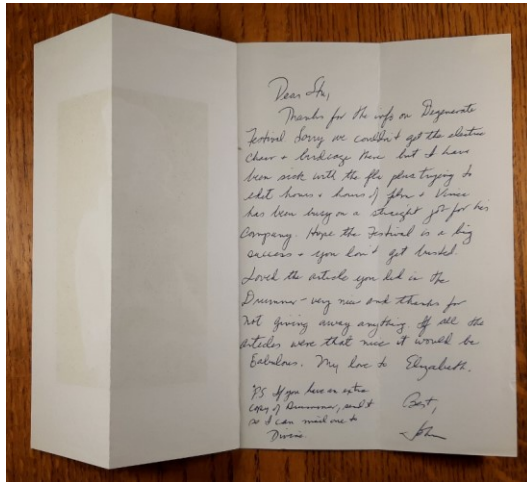 Dear Stu,
Thanks for the info on Degenerate
Festival. Sorry we couldn't get the electric
chair + birdcage there but I have
been sick with the flu plus trying to
edit hours + hours of film + Vince
has been busy on a straight job for his
Company. Hope the Festival is a big
success + you don't get busted.
Loved the article you did in the
Drummer - very nice and thanks for
not giving away anything. If all the
articles were that nice it would be
fabulous. My love to Elizabeth.
Best,
John
PS If you have an extra
copy of Drummer, send it
so I can mail one to
Divine.